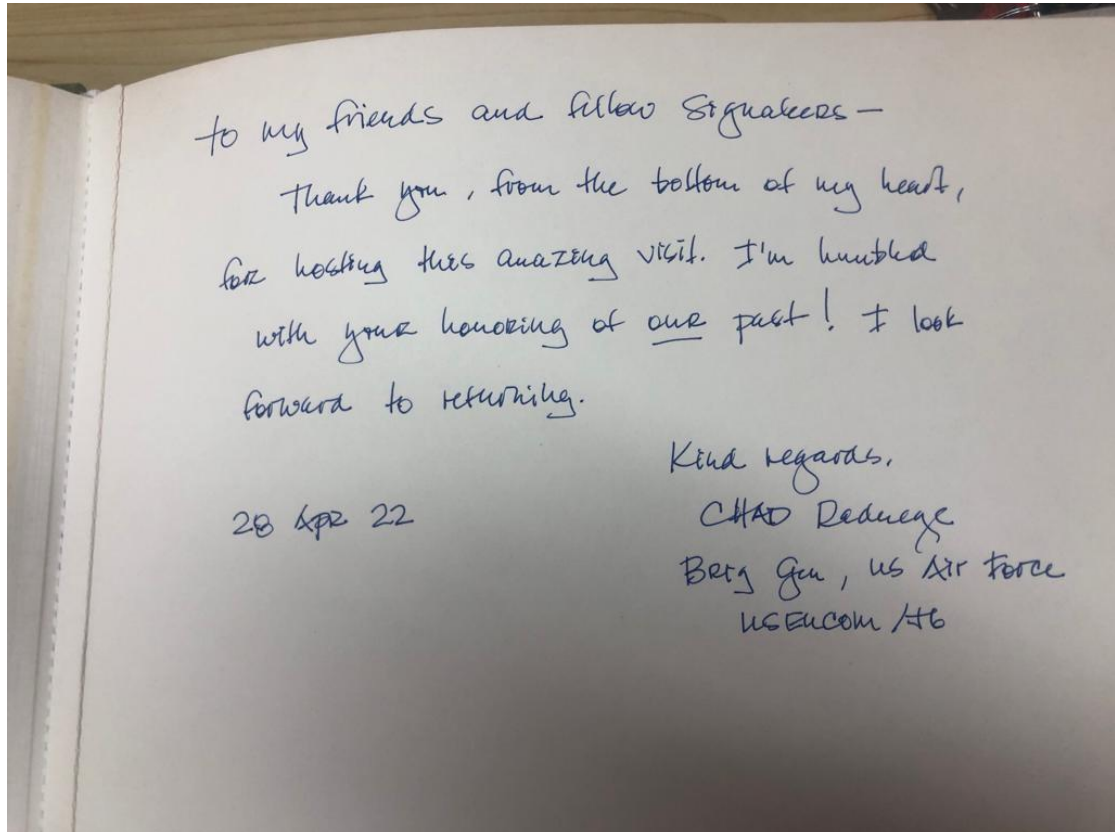 to my friends and fellow Signaleers –
Thank you, from the bottom of my heart,
for hosting this amazing visit. I'm humbled
with your honoring of our past! I look
forward to returning.
Kind regards,
28 Apr 22
CHAD Raduege
Brig Gen, US Air Force
USEUCOM/J6